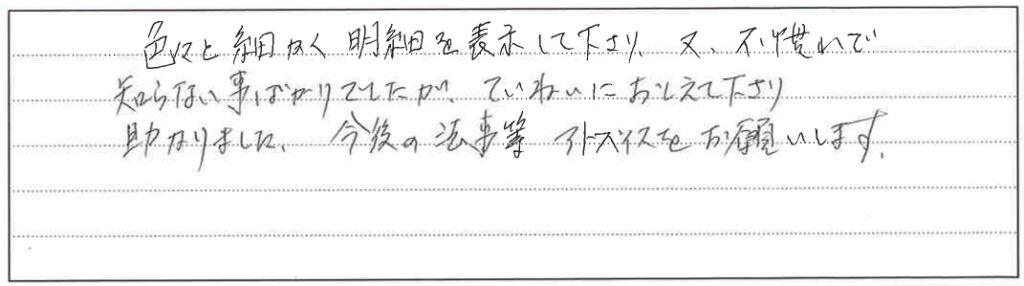 色々と細かく明細を表示して下さり、又、不慣れで
知らない事ばかりでしたが、ていねいにおしえて下さり
助かりました。今後の法事等アドバイスをお願いします。